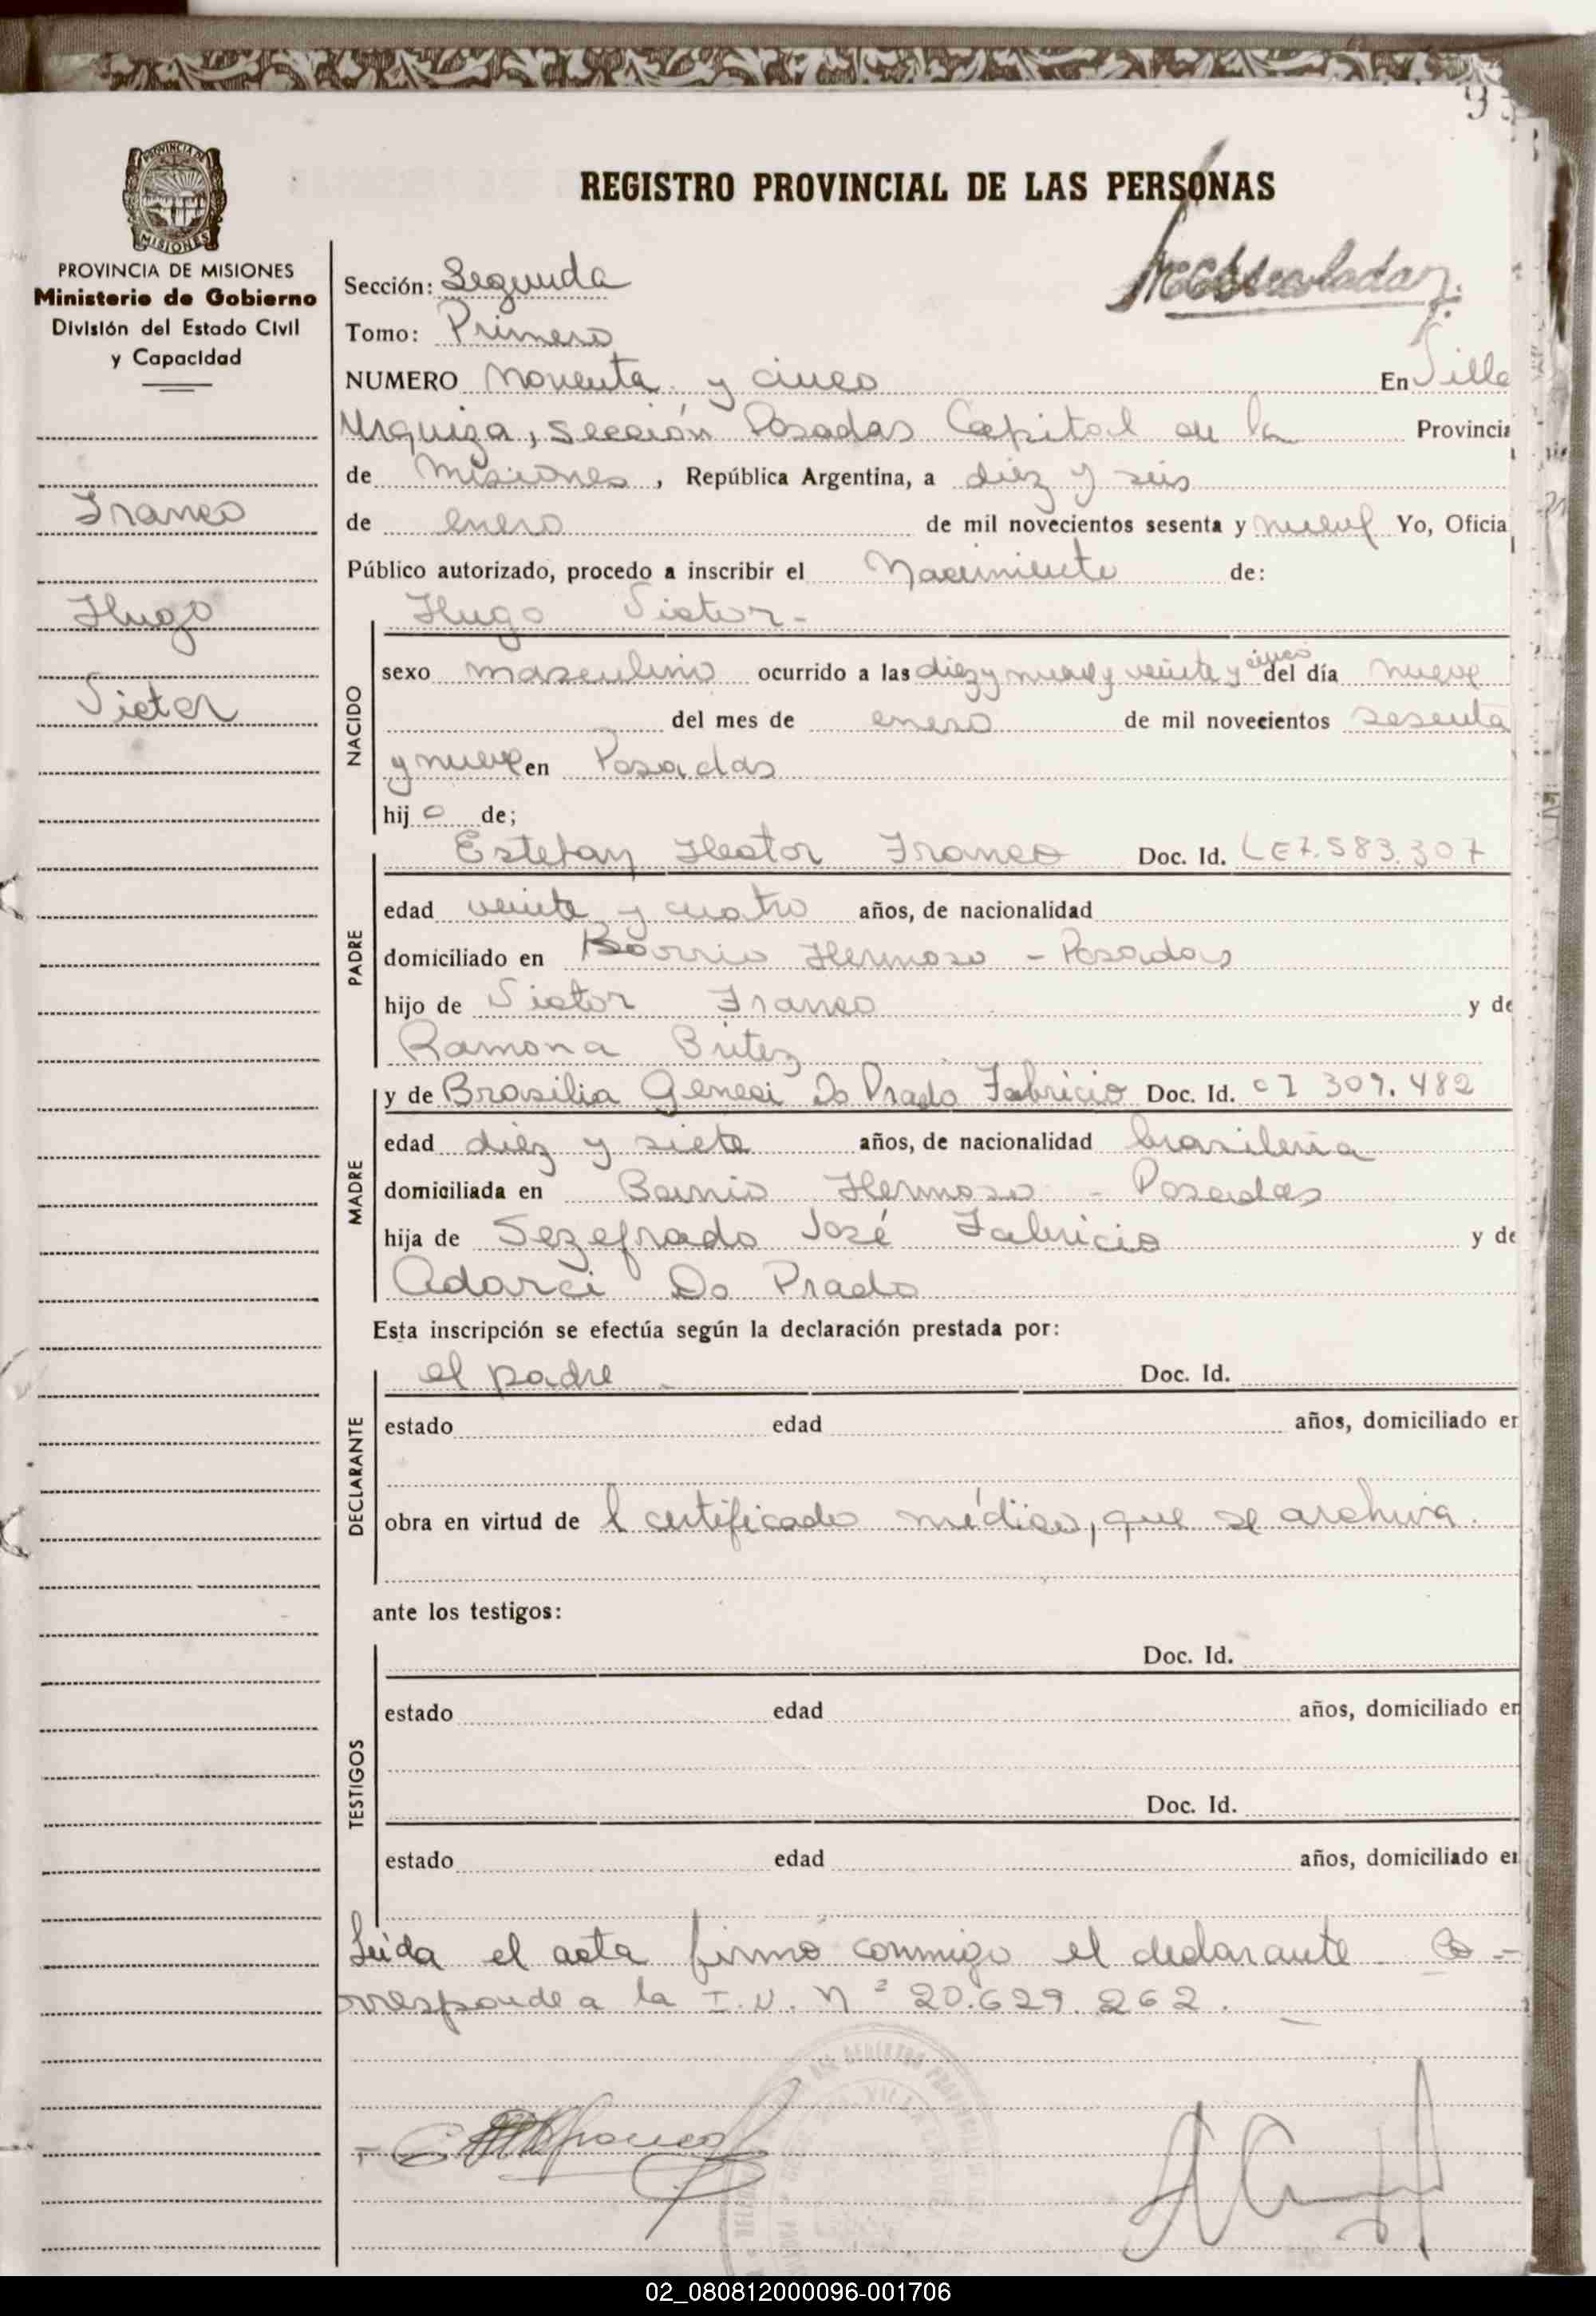 REGISTRO PROVINCIAL DE LAS PERSONAS
PROVINCIA DE MISIONES
Ministerio de Gobierno
División del Estado Civil
y Capacidad
Franco
Hugo
Victor
Sección: Segunda
Tomo: Primero
NUMERO Noventa y cinco En Villa
Urquiza, sección Posadas Capital de la Provincia
de Misiones, República Argentina, a diez y seis
de enero de mil novecientos sesenta y nueve Yo, Oficia
Público autorizado, procedo a inscribir el Nacimiento de:
Hugo Victor-
NACIDO
sexo masculino ocurrido a las diez y nueve y veinte y cinco del día nueve
del mes de enero de mil novecientos sesenta
y nueve en Posadas
hij o de;
PADRE
Esteban Hector Franco Doc. Id. LE 7.583.307
edad veinte y cuatro años, de nacionalidad
domiciliado en Barrio Hermoso - Posadas
hijo de Victor Franco y de
Ramona Britez
MADRE
y de Brasilia Geneci Do Prado Fabricio Doc. Id. CI 309.482
edad diez y siete años, de nacionalidad brasileria
domiciliada en Barrio Hermoso - Posadas
hija de Sezefrado José Fabricio y de
Adarci Do Prado
Esta inscripción se efectúa según la declaración prestada por:
DECLARANTE
el padre Doc. Id.
estado edad años, domiciliado en
obra en virtud de l certificado médico, que se archiva.
ante los testigos:
TESTIGOS
Doc. Id.
estado edad años, domiciliado en
Doc. Id.
estado edad años, domiciliado en
Leída el acta firmó conmigo el declarante Co-
rresponde a la I.N. Nº 20.629.262.
02_080812000096-001706